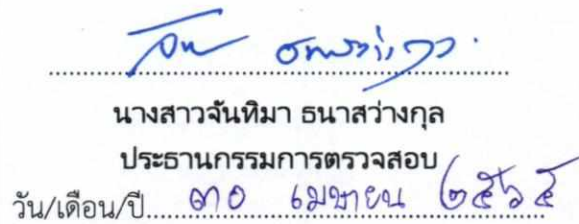 นางสาวจันทิมา ธนาสว่างกุล
ประธานกรรมการตรวจสอบ
วัน/เดือน/ปี.....๓๐ เมษายน ๒๕๖๕